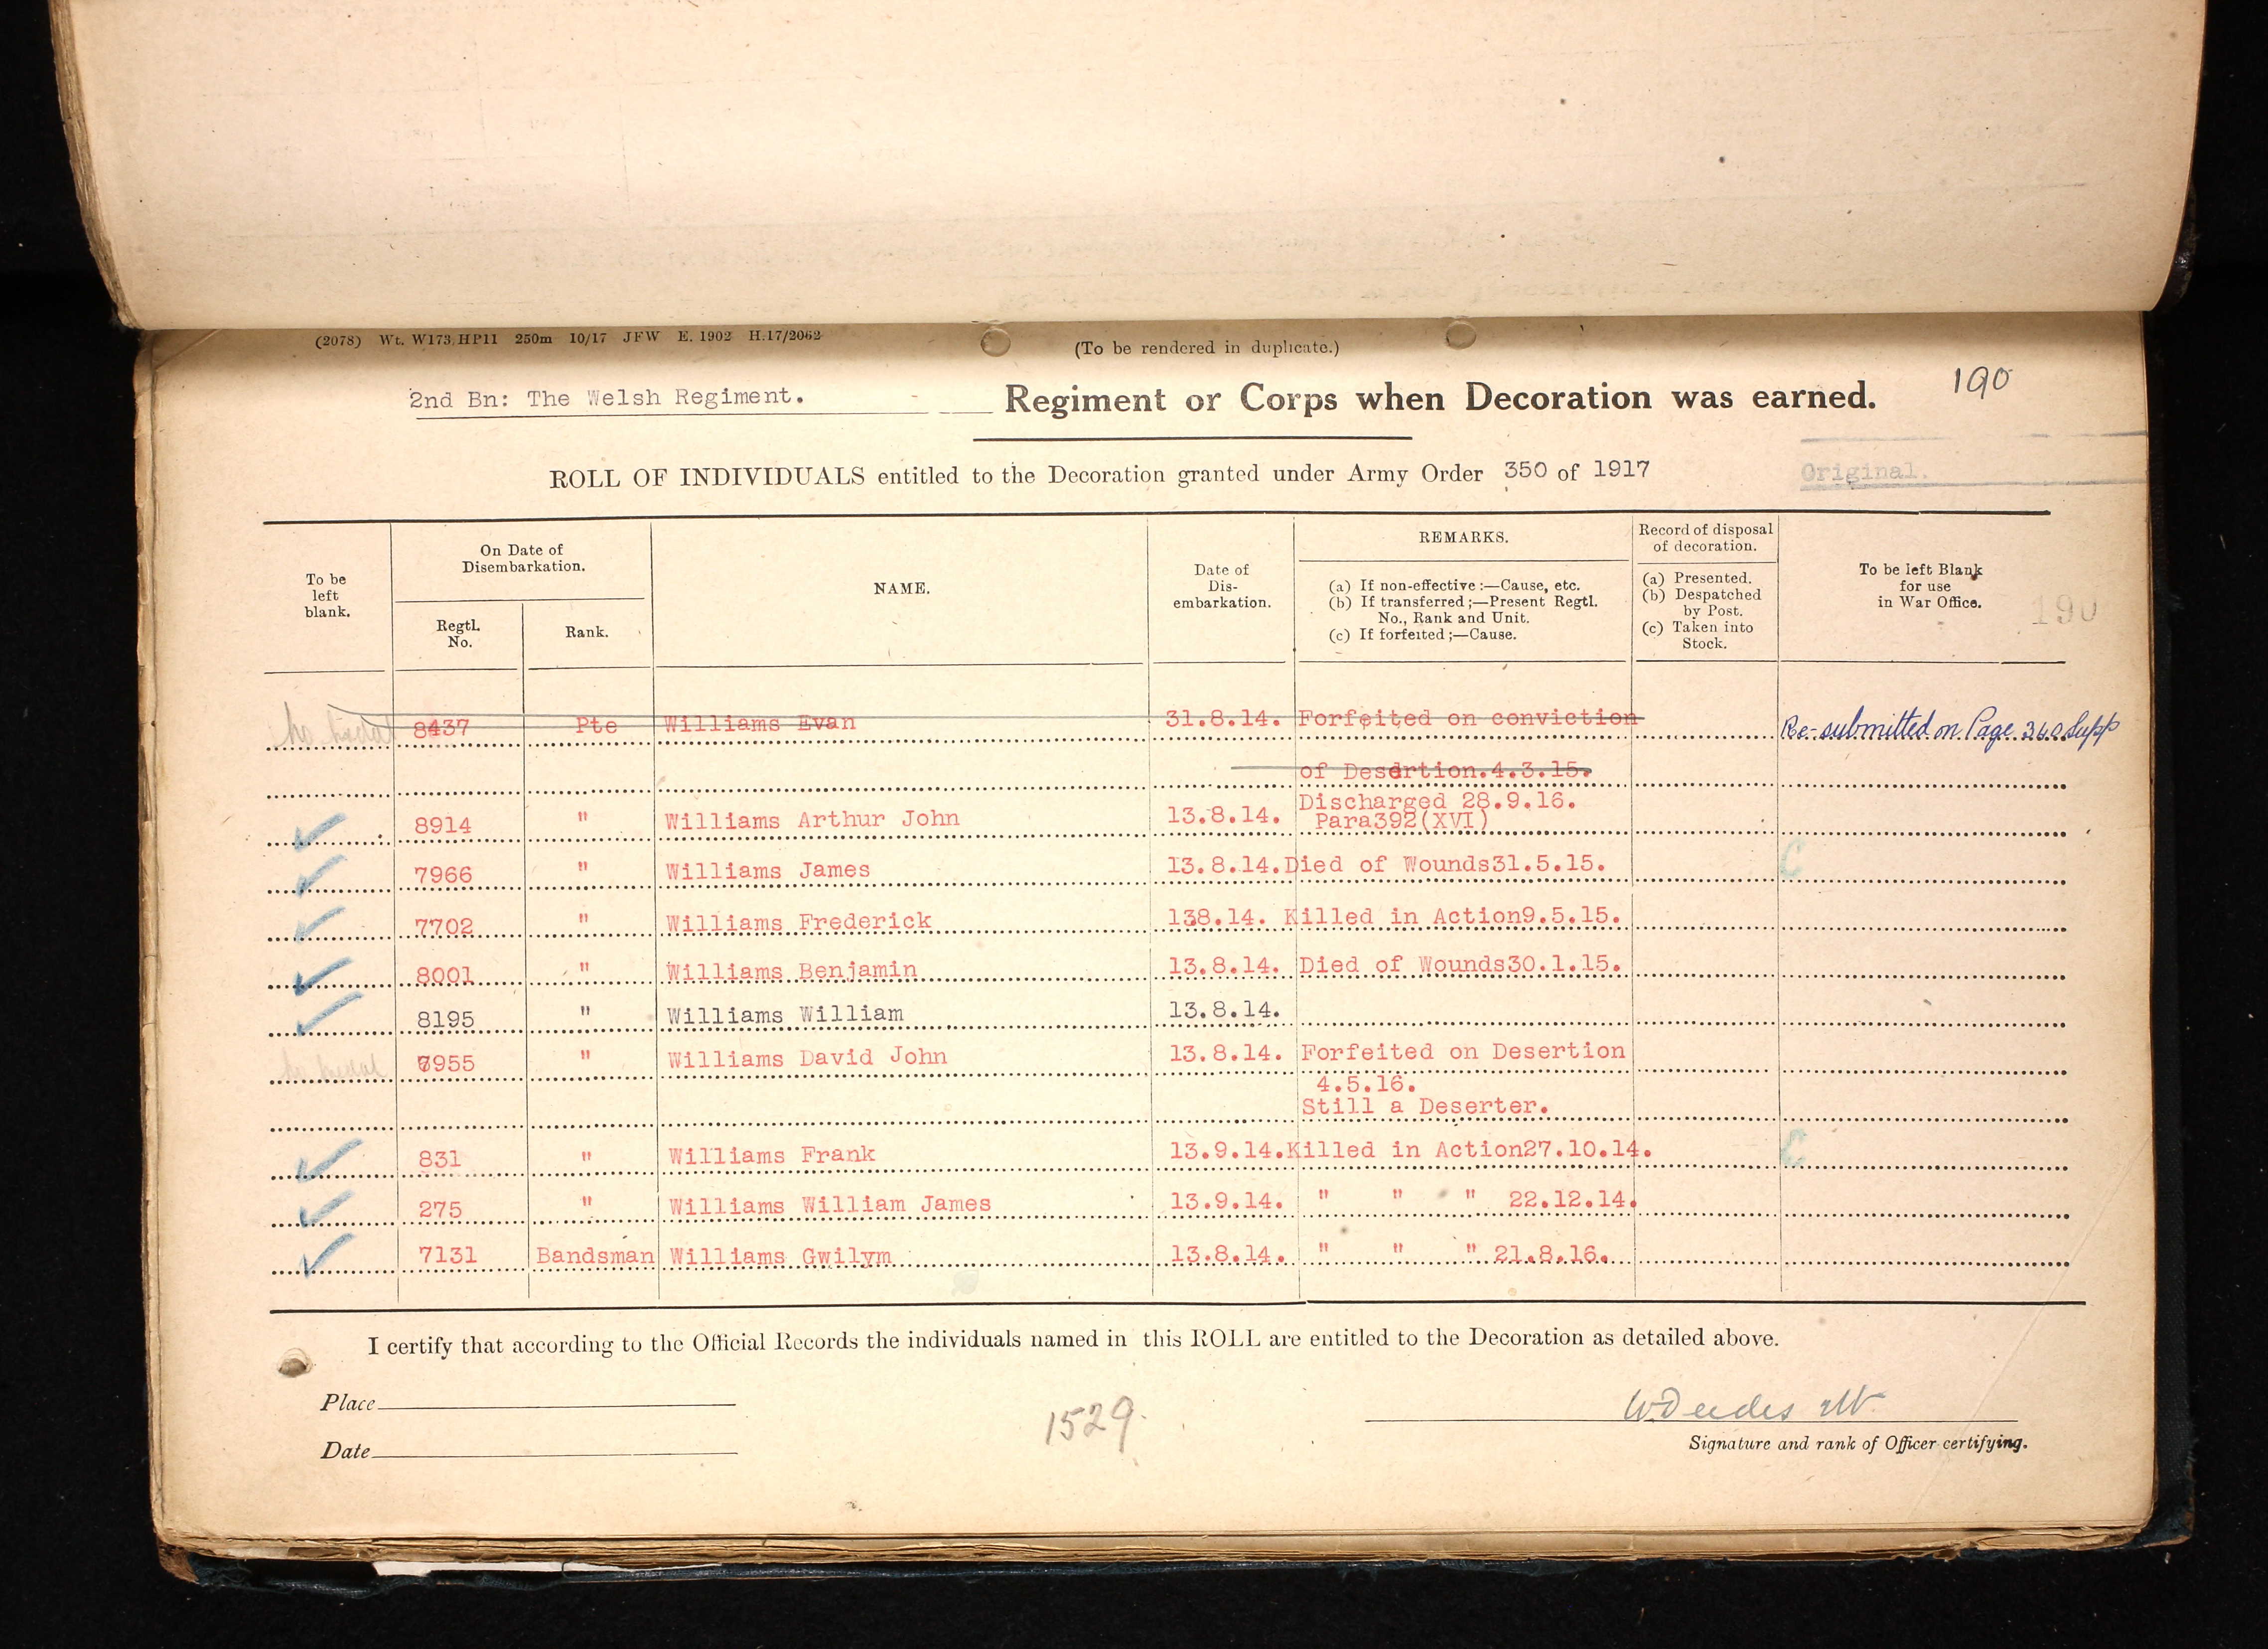 (2078) Wt. W173 HP11 250m 10/17 JFW E. 1902 H.17/2062
(To be rendered in duplicate.)
2nd Bn: The Welsh Regiment. Regiment or Corps when Decoration was earned. 190
ROLL OF INDIVIDUALS entitled to the Decoration granted under Army Order 350 of 1917 Original.
To be left blank. On Date of Disembarkation. Regtl. No. Rank. NAME. Date of Dis-embarkation. REMARKS. (a) If non-effective :—Cause, etc. (b) If transferred ;—Present Regtl. No., Rank and Unit. (c) If forfeited ;—Cause. Record of disposal of decoration. (a) Presented. (b) Despatched by Post. (c) Taken into Stock. To be left Blank for use in War Office. 190
no medal 8437 Pte Williams Evan 31.8.14. Forfeited on conviction Re-submitted on Page 360 Supp
of Desertion.4.3.15.
8914 " Williams Arthur John 13.8.14. Discharged 28.9.16.
Para392(XVI)
7966 " Williams James 13.8.14. Died of Wounds31.5.15. C
7702 " Williams Frederick 138.14. Killed in Action9.5.15.
8001 " Williams Benjamin 13.8.14. Died of Wounds30.1.15.
8195 " Williams William 13.8.14.
no medal 955 " Williams David John 13.8.14. Forfeited on Desertion
4.5.16.
Still a Deserter.
831 " Williams Frank 13.9.14. Killed in Action27.10.14. C
275 " Williams William James 13.9.14. " " " 22.12.14.
7131 Bandsman Williams Gwilym 13.8.14. " " " 21.8.16.
I certify that according to the Official Records the individuals named in this ROLL are entitled to the Decoration as detailed above.
Place
Date
1529.
Signature and rank of Officer certifying.